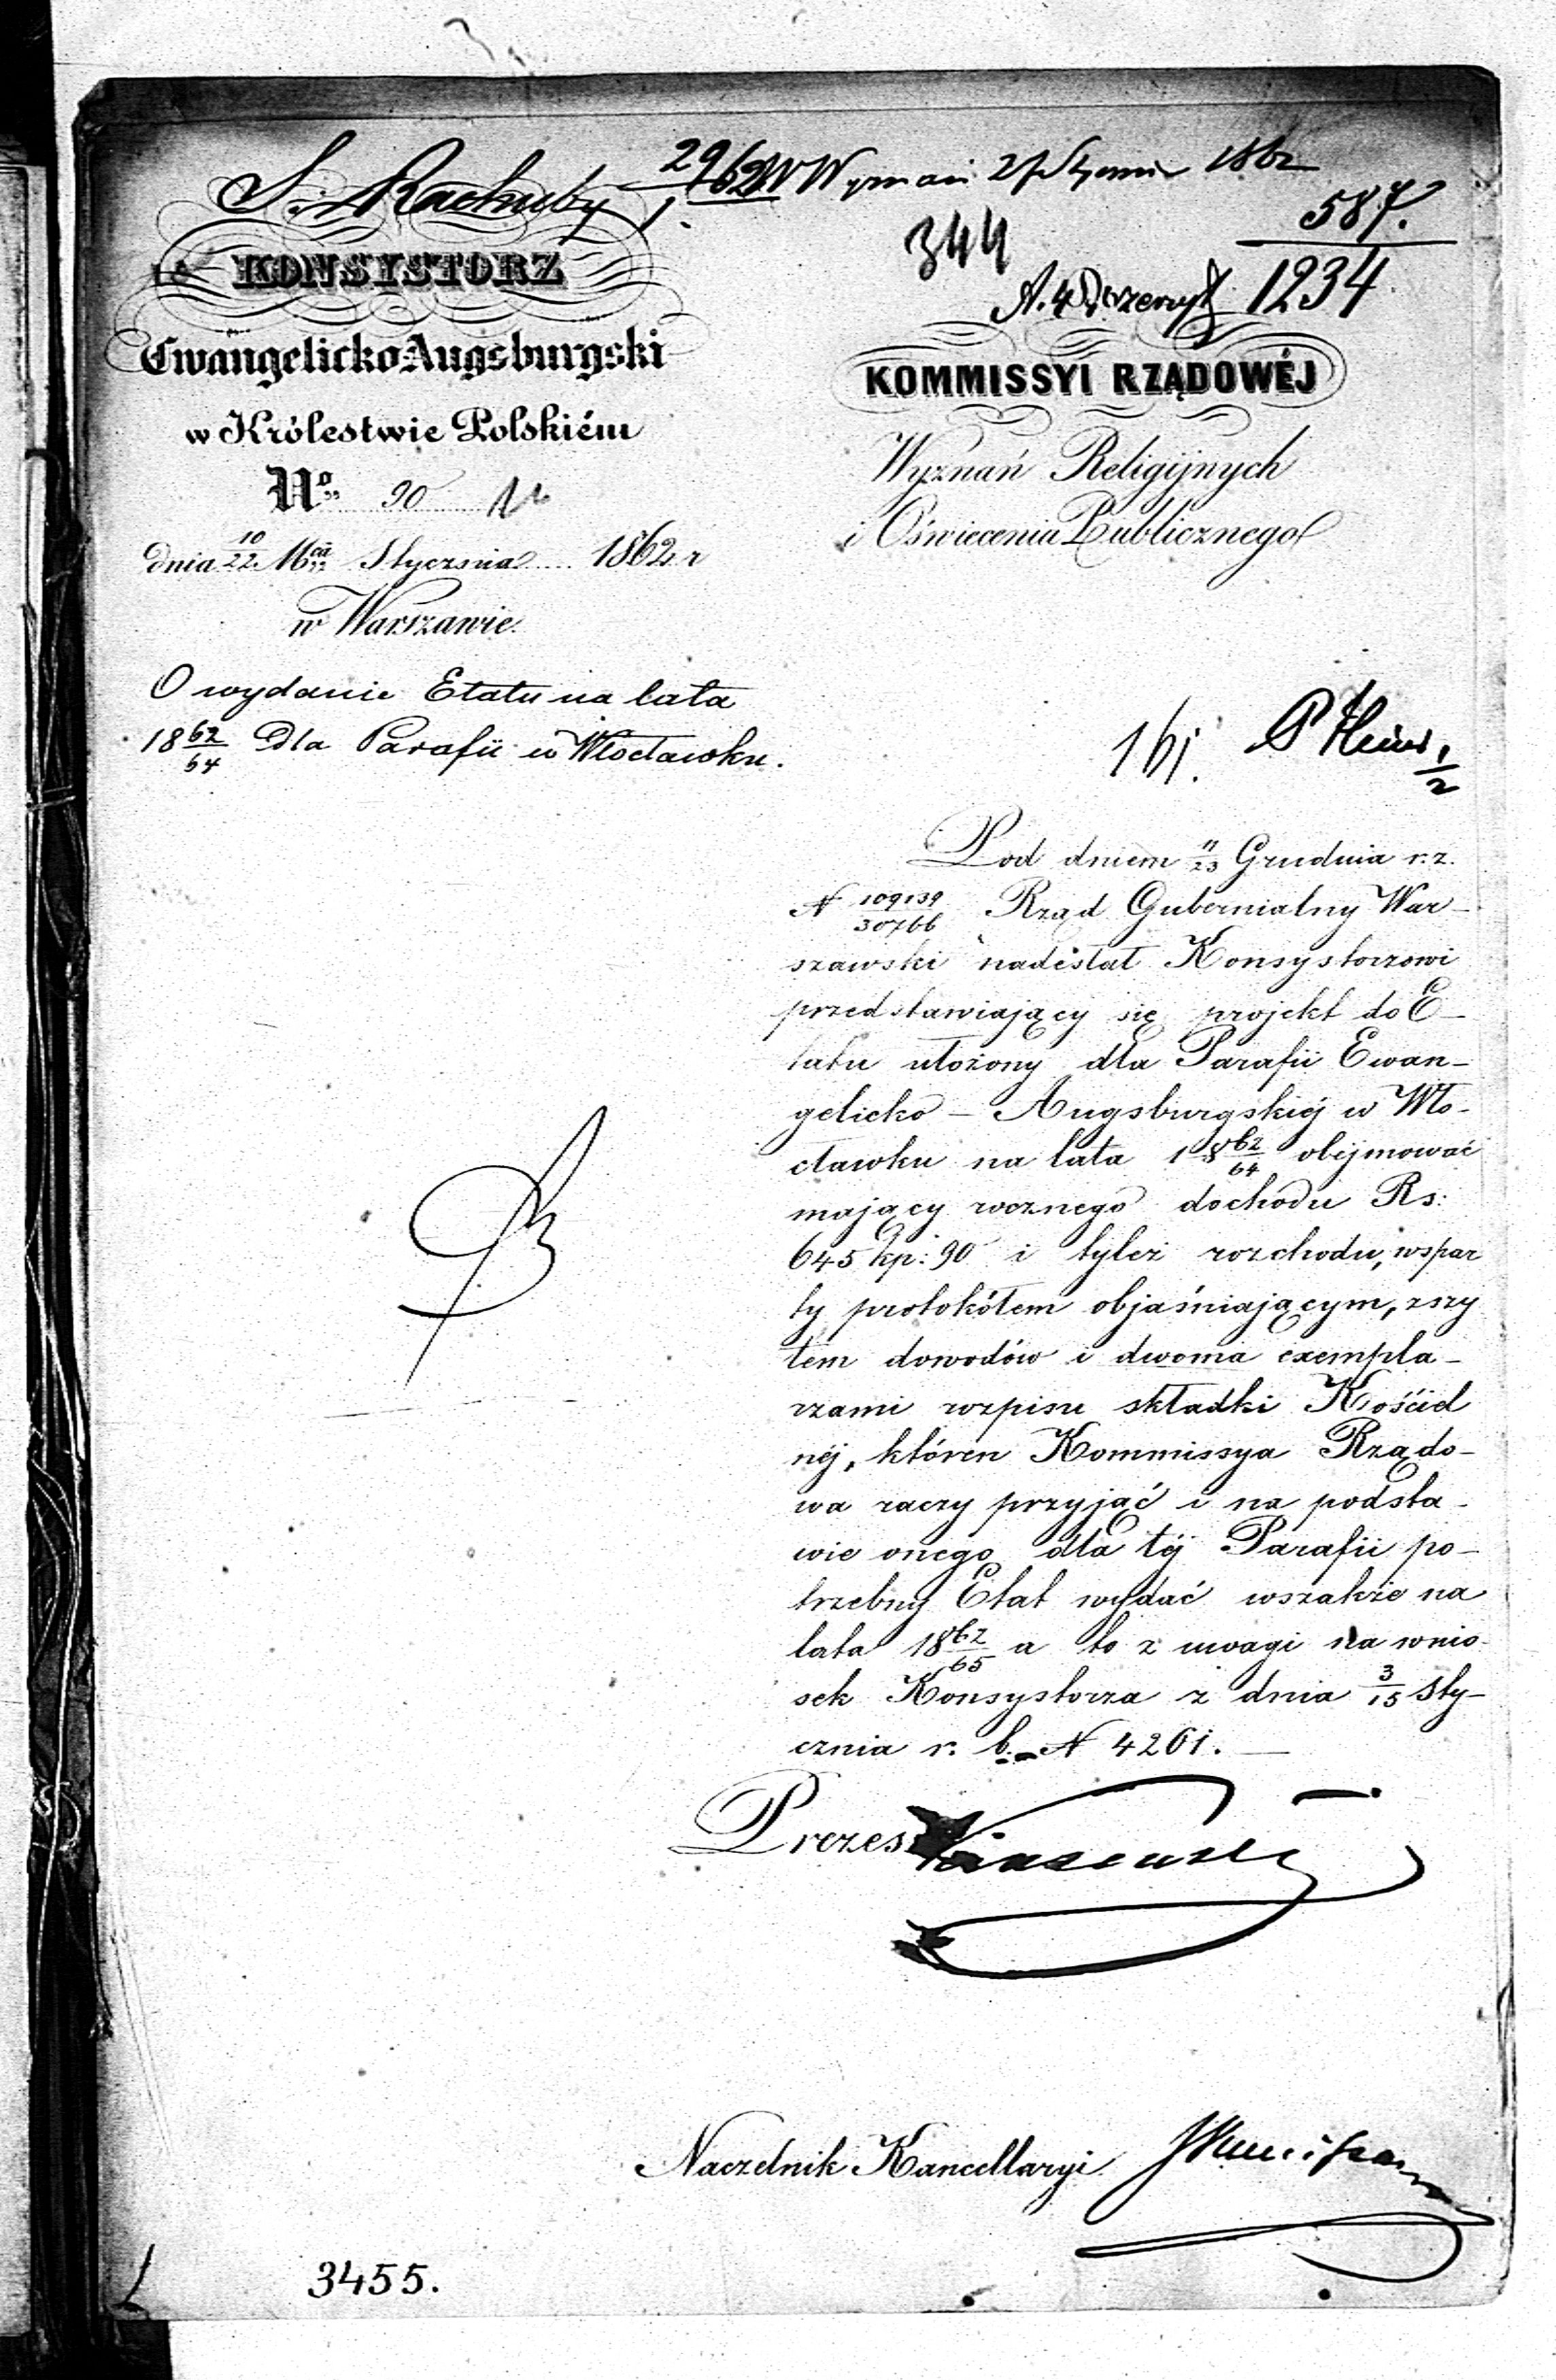 S. Rachuby 29/1 62
1862
344
587.
1234
KONSYSTORZ
Ewangelicko Augsburgski
w Królestwie Polskiém
No 90
dnia 10/22 Mca Stycznia 1862 r
w Warszawie.
O wydanie Etatu na lata
18 62/64 dla Parafii w Włocławku.
KOMMISSYI RZĄDOWÉJ
Wyznań Religijnych
i Oświecenia Publicznego
1/2
Pod dniem 11/23 Grudnia r. z.
N 109139/30766 Rząd Gubernialny War-
szawski nadesłał Konsystorzowi
przedstawiający się projekt do E-
tatu ułożony dla Parafii Ewan-
gelicko - Augsburgskiéj w Wło-
cławku na lata 18 62/64 obejmować
mający rocznego dochodu Rs:
645 kp: 90 i tyleż rozchodu, wspar
ty protokółem objaśniającym, zszy
tem dowodów i dwoma exempla-
rzami rozpisu składki Kościel
néj, któren Kommissya Rządo-
wa raczy przyjąć i na podsta-
wie onego dla téj Parafii po-
trzebny Etat wydać wszakże na
lata 18 62/65 a to z uwagi na wnio-
sek Konsystorza z dnia 3/15 Sty-
cznia r. b. N 4261.
Prezes
Naczelnik Kancellaryi
3455.